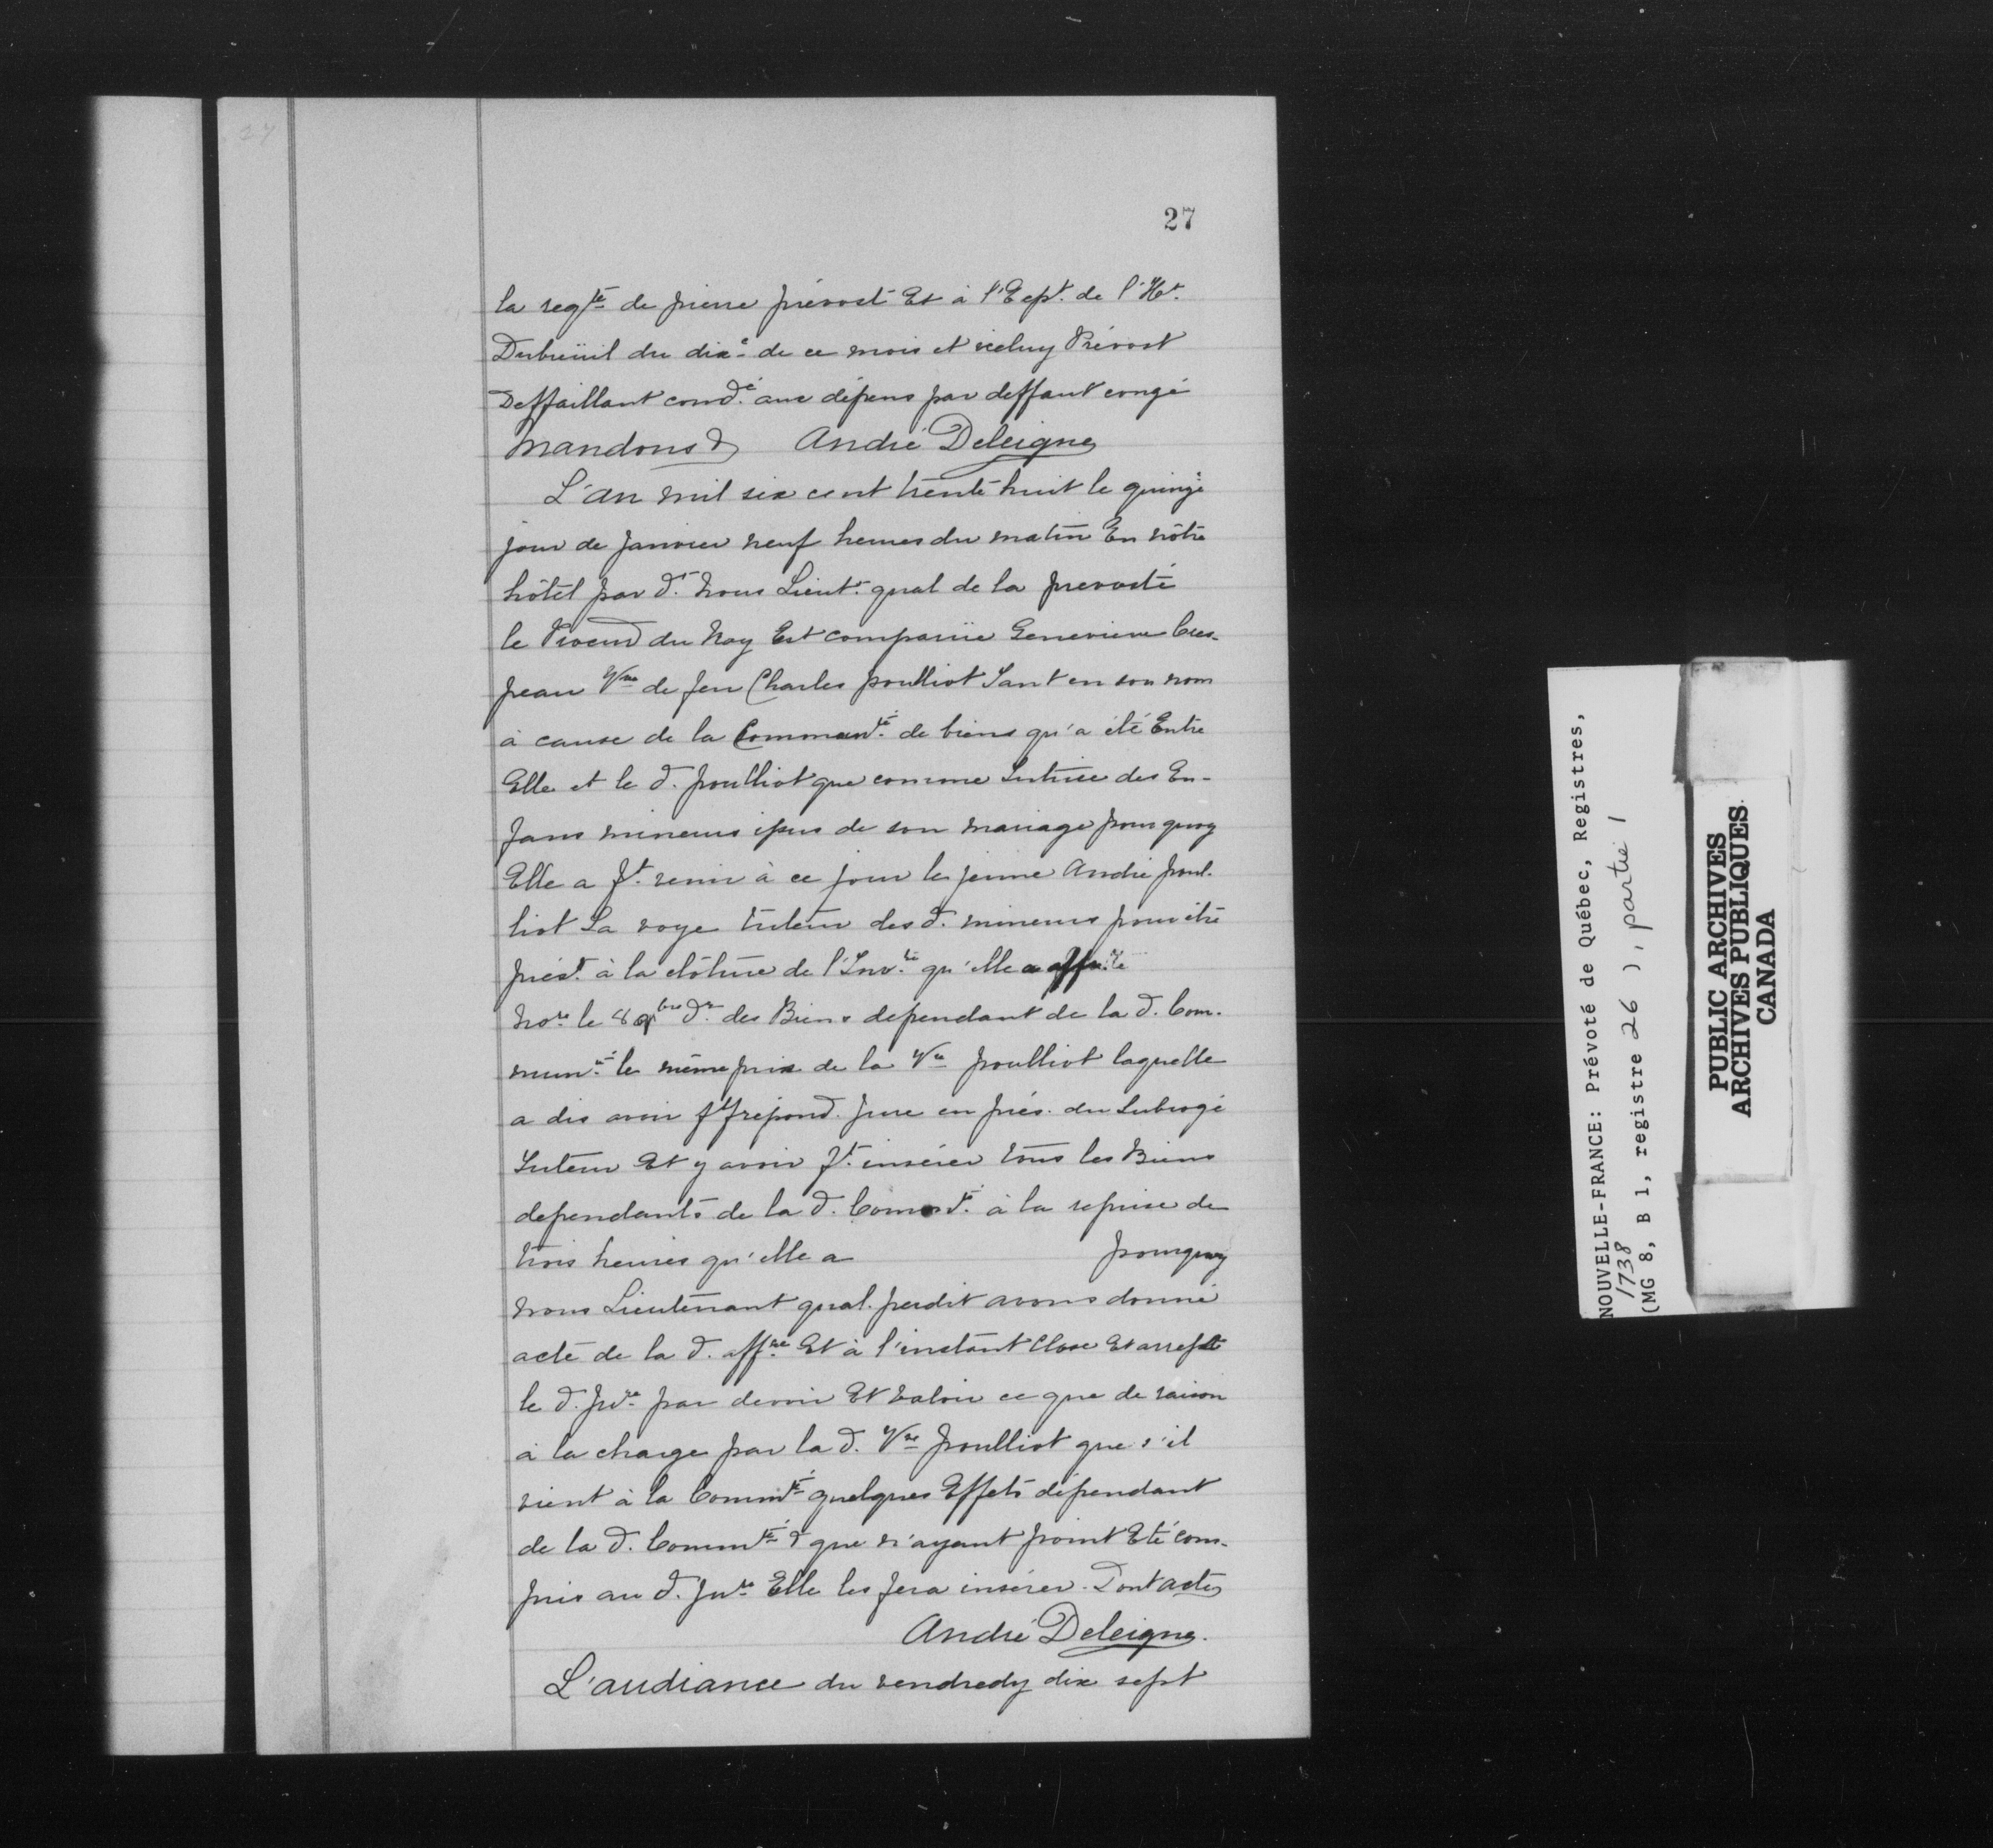 27
27
la reqte de pierre prévost Et à l'Expt. de l'Ht.
Dubreüil du dixe de ce mois et iceluy Prévost
Deffaillant condé aux dépens par deffaut congé
Mandons & André Deleigne
L'an mil six cent trente huit le quinzè
jour de Janvier neuf heures du matin En nôtre
hôtel par dt. nous Lieut. gnal de la prevosté
le Procur du Roy Est comparüe Genevieve Cres-
peau Vve de feu Charles poulliot Tant en son nom
à cause de la Communté de biens qu'a été Entre
Elle et le d. poulliot que comme Tutrice des En-
fans mineurs issus de son mariage pourquoy
Elle a ft. venir à ce jour le jeune André poul-
liot La voye tuteur des d. mineurs pour être
prést. à la clôture de l'Invre qu'elle a
Nore le 8 9bre dr. des Biens dependant de la d. Com-
munté le même prix de la Vve poulliot laquelle
a dis avoir ft Jure en prés. du Subrogé
Tuteur Et y avoir ft. insérer tous les Biens
dependants de la d. Comté. à la reprise de
trois heures qu'elle a pourquoy
nous Lieutenant gnal. perdit avons donné
acte de la d. affre Et à l'instant Close Et arresté
le d. Jnvre par devoir Et valoir ce que de raison
à la charge par la d. Vve poulliot que s'il
vient à la Commté quelques Effets dépendant
de la d. Commté & que n'ayant point Eté com-
pris au d. Jnre Elle les fera insérer. Dont acte
André Deleigne.
L'audiance du vendredy dix sept
NOUVELLE-FRANCE: Prévoté de Québec, Registres,
1738
(MG 8, B 1, registre 26 ), partie 1
PUBLIC ARCHIVES
ARCHIVES PUBLIQUES
CANADA